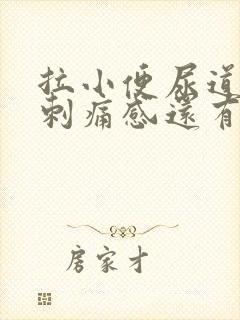 拉小便尿道
刺痛感還有
房家才